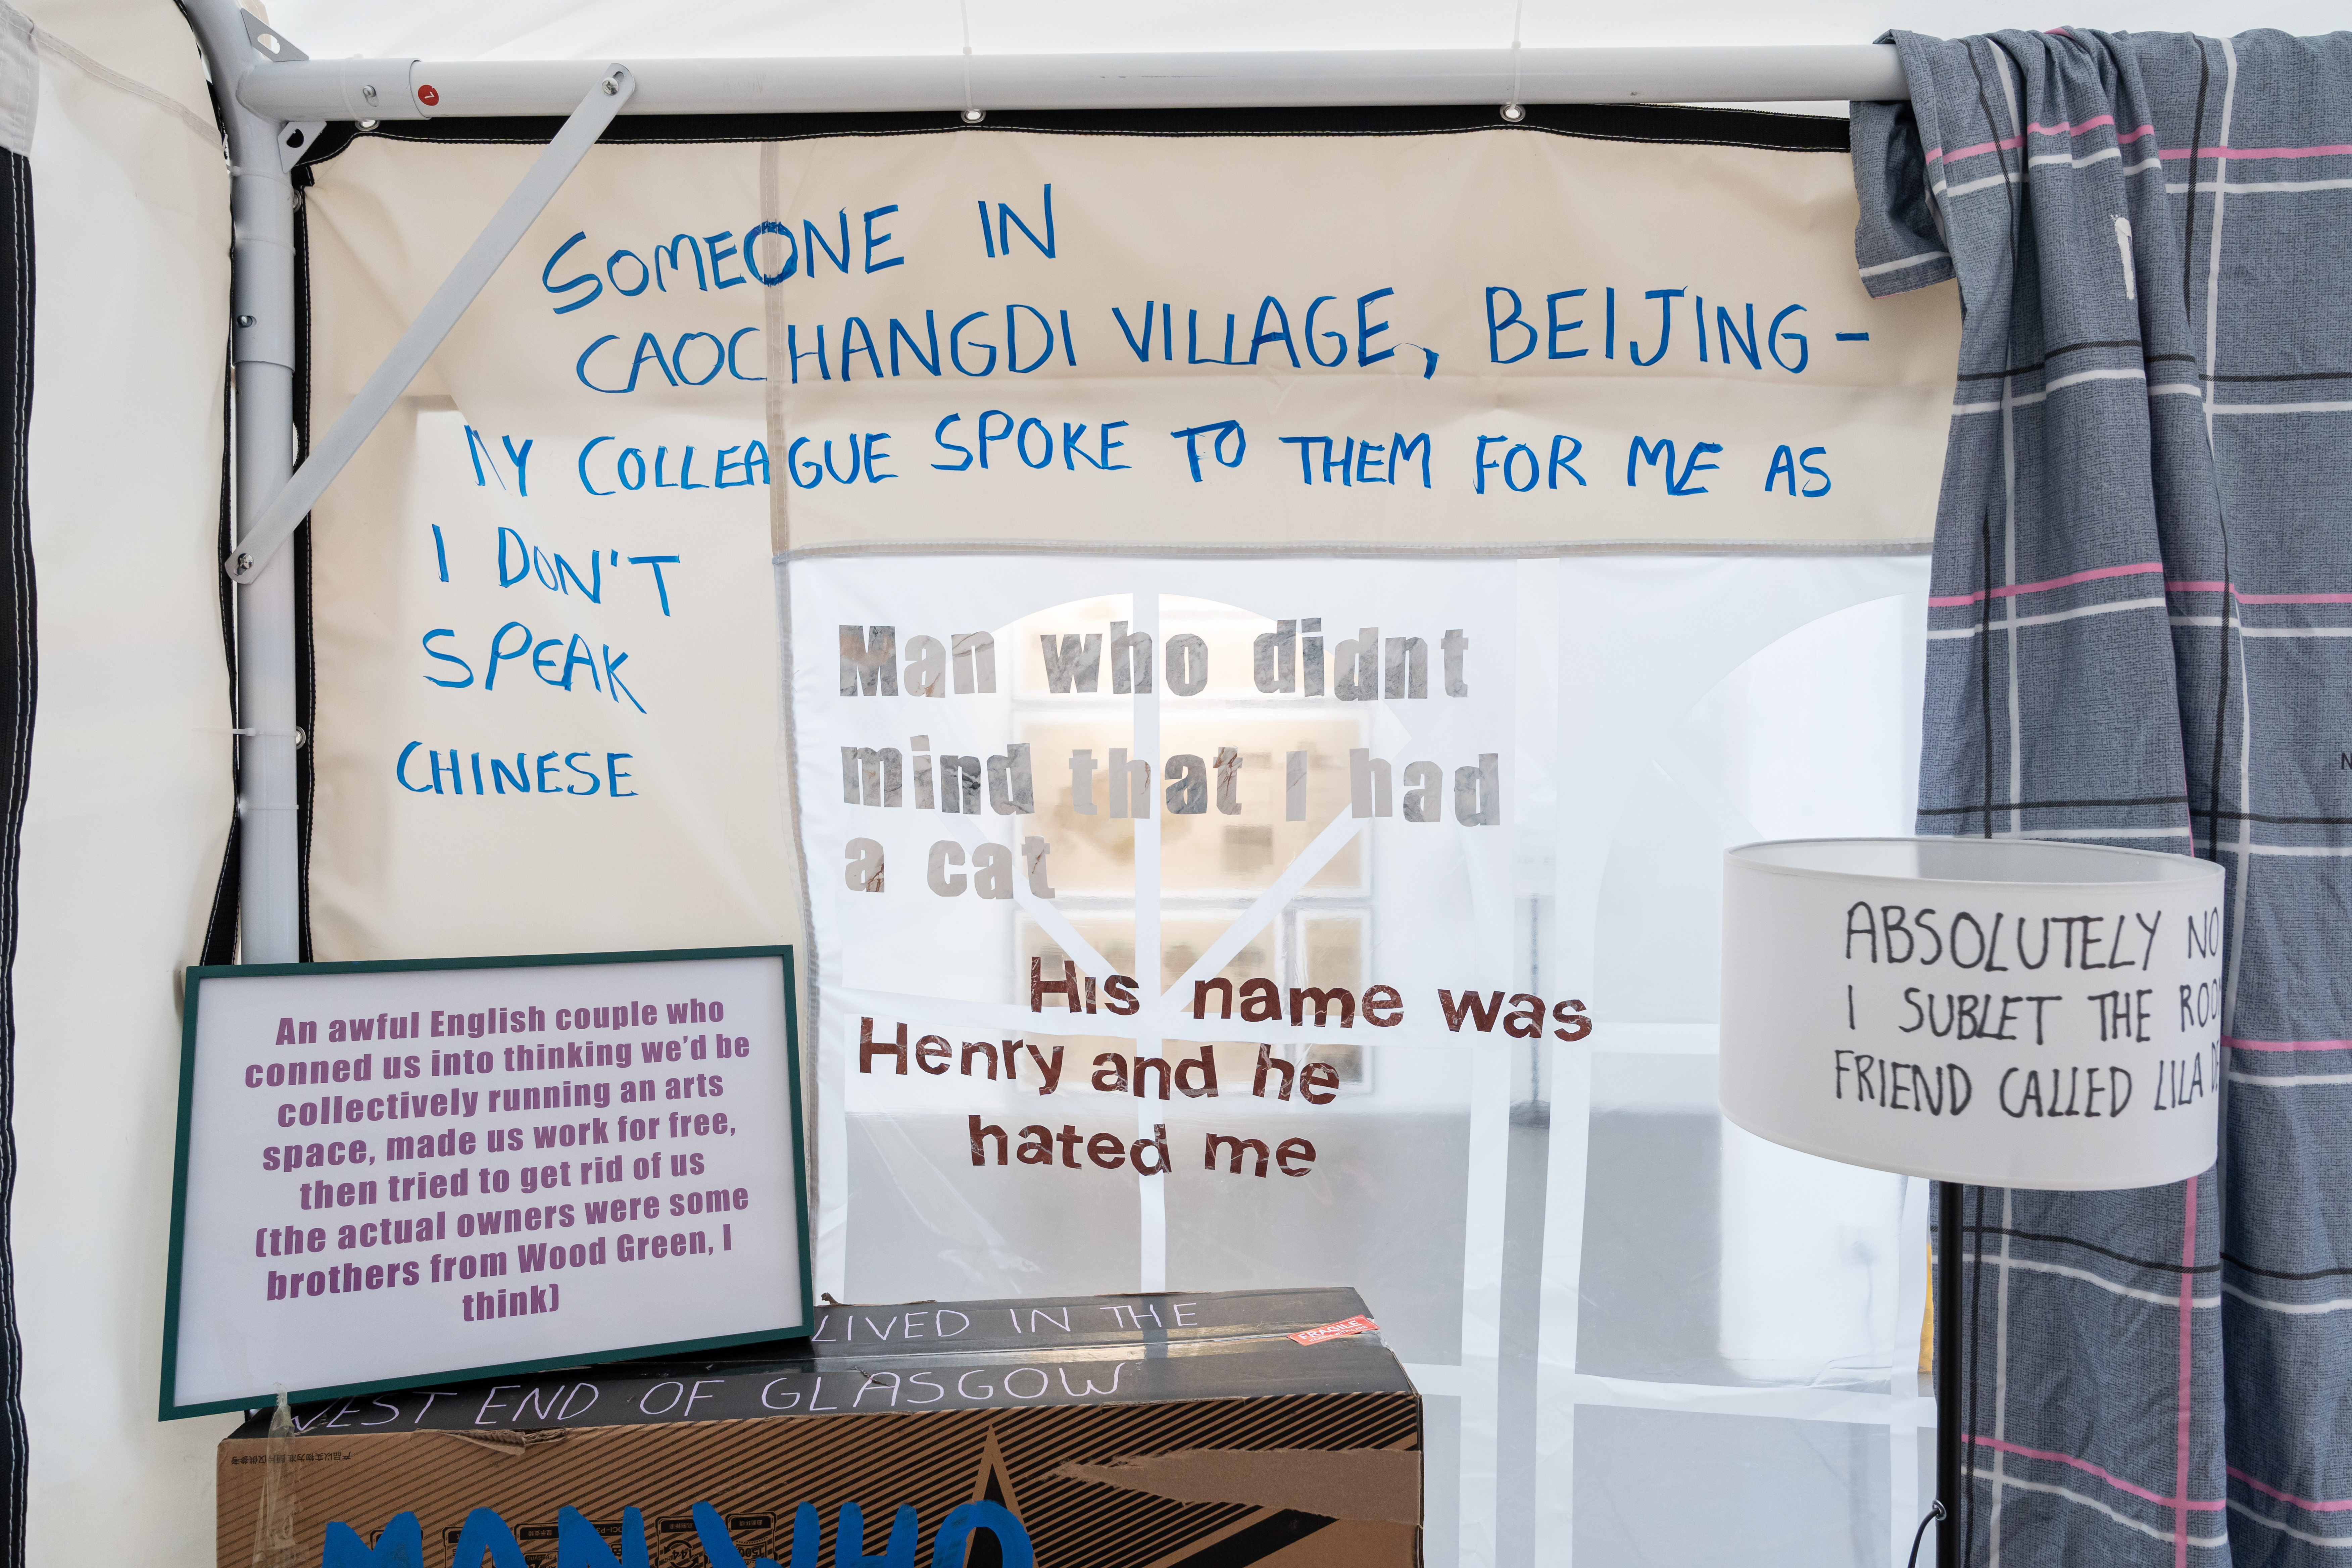 SOMEONE IN
CAOCHANGDI VILLAGE, BEIJING -
MY COLLEAGUE SPOKE TO THEM FOR ME AS
I DON'T
SPEAK
CHINESE
Man who didnt
mind that I had
a cat
His name was
Henry and he
hated me
An awful English couple who
conned us into thinking we'd be
collectively running an arts
space, made us work for free,
then tried to get rid of us
(the actual owners were some
brothers from Wood Green, I
think)
ABSOLUTELY NO
I SUBLET THE
FRIEND CALLED LILA
LIVED IN THE
FRAGILE
WEST END OF GLASGOW
MAN WHO